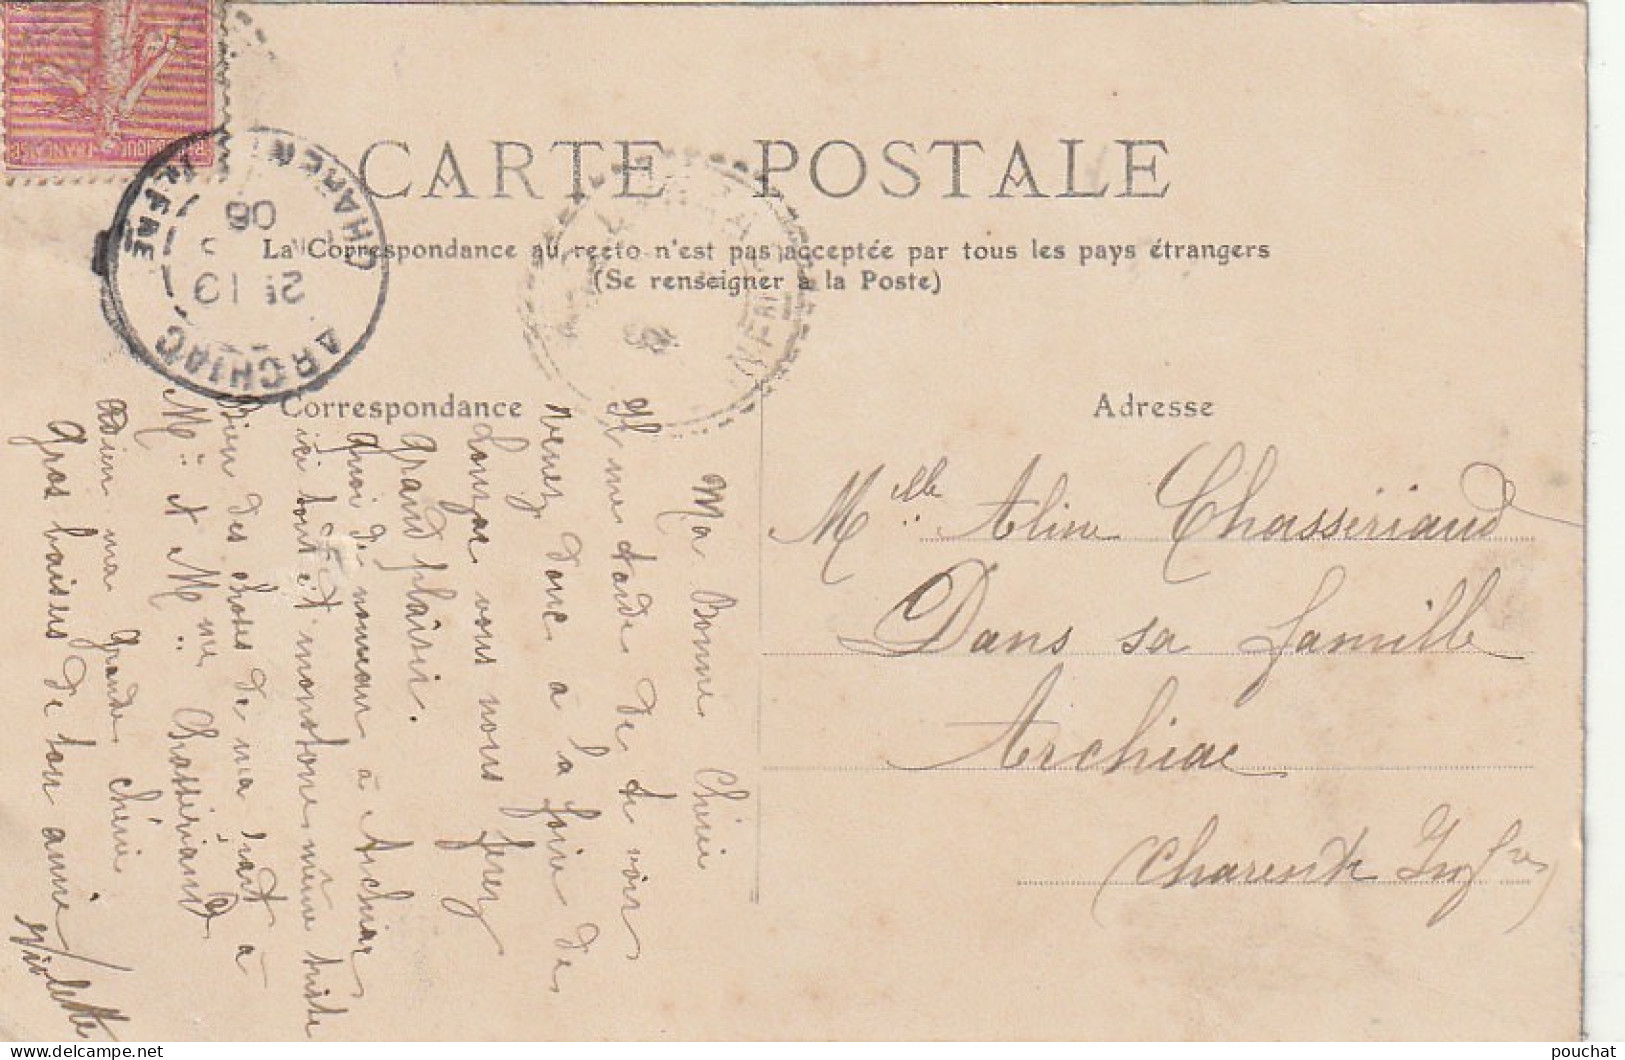 RÉPUBLIQUE FRANÇAISE
CARTE POSTALE
La Correspondance au recto n'est pas acceptée par tous les pays étrangers
(Se renseigner à la Poste)
ARCHIAC
CHARENTE INF RE
21 13
08
Correspondance
Adresse
Ma Bonne Chérie
Il me tarde de te voir
venez donc à la foire de
Jonzac vous nous ferez
grand plaisir.
quoi de nouveau à Archiac
ici tout est monotone même triste
Bien des choses de ma part à
M.. et Mme.. Chassériaud
Adieu ma grande chérie
Gros baisers de ton amie
Violette
Melle Aline Chassériaud
Dans sa famille
Archiac
(Charente Infre)
pouchat